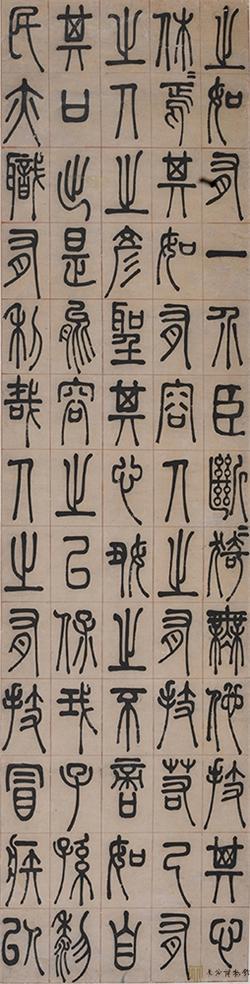 之如有一介臣斷猗無他技其心
休焉其如有容人之有技若己有
之人之彥聖其心好之不啻如自
其口出是能容之以保我子孫黎
民亦職有利哉人之有技冒疾以